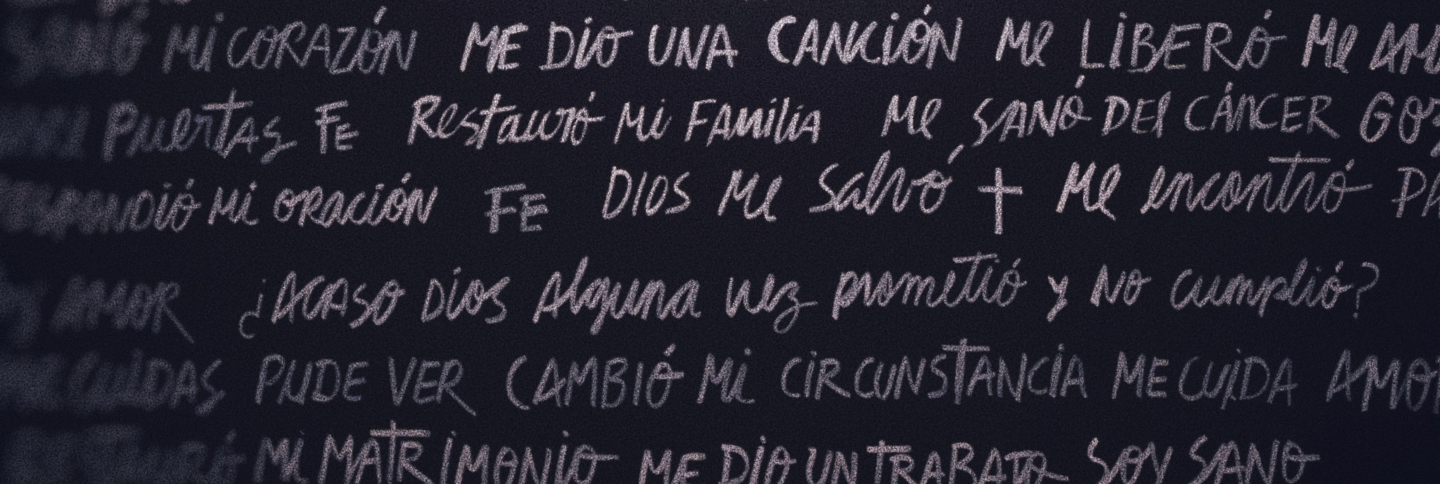 SANÓ MI CORAZÓN ME DIO UNA CANCIÓN ME LIBERÓ ME
Puertas FE Restauró Mi FAMiliA ME SANÓ DEl CÁNCER
Mi ORACIÓN FE DIOS ME SAlvó ME encontró
AMOR ¿ACASO DIOS Alguna vez prometió y No cumplió?
CUIDAS PUDE VER CAMBIÓ Mi CIRCUNSTANCIA ME CUIDA
Mi MATRIMONIO ME DIO UN TRABAJO SOY SANO